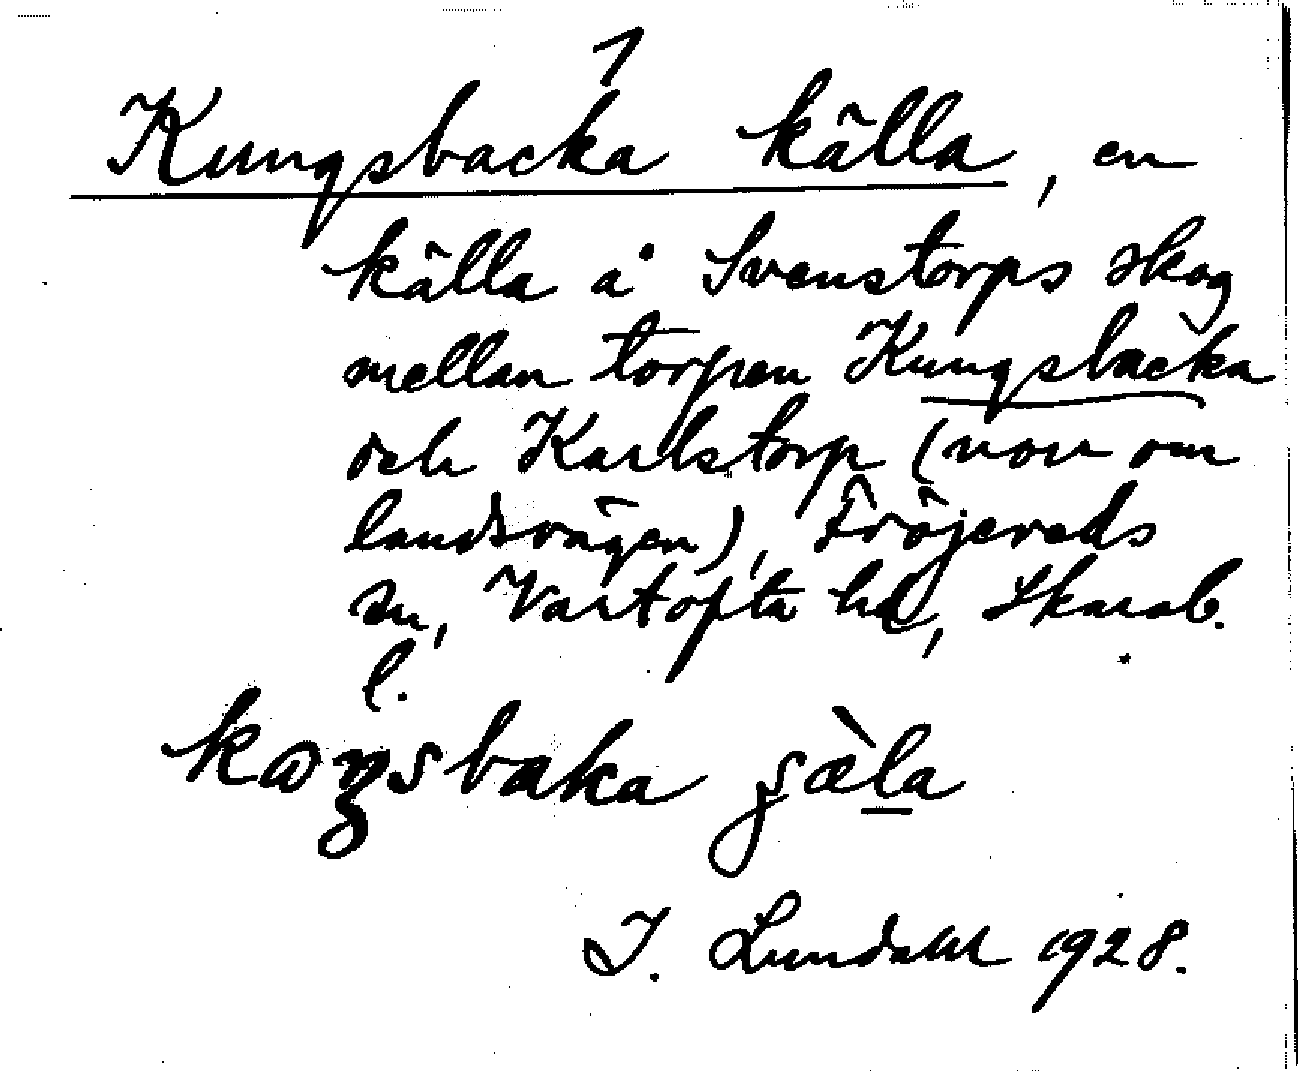 1
Kungsbacka källa, en
källa å Svenstorps skog
mellan torpen Kungsbacka
och Karlstorp (norr om
landsvägen), Fröjereds
sn, Vartofta hd, Skarab.
l.
kɷŋsbaka ʂæ̀la
I. Lundahl 1928.